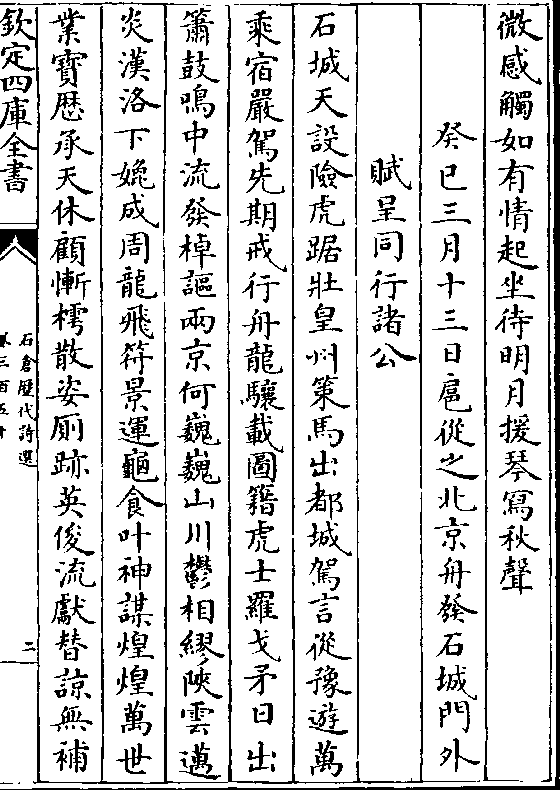 微感觸如有情起坐待明月援琴寫秋聲
癸巳三月十三日扈從之北京舟發石城門外
賦呈同行諸公
石城天設險虎踞壯皇州策馬出都城駕言從豫遊萬
乘宿嚴駕先期戒行舟龍驤載圖籍虎士羅戈矛日出
簫鼓鳴中流發棹謳兩京何巍巍山川鬱相繆陝雲邁
炎漢洛下媲成周龍飛符景運龜食叶神謀煌煌萬世
業寶歴承天休顧慚樗散姿厠跡英俊流獻替諒無補
欽定四庫全書
石倉歴代詩選
二